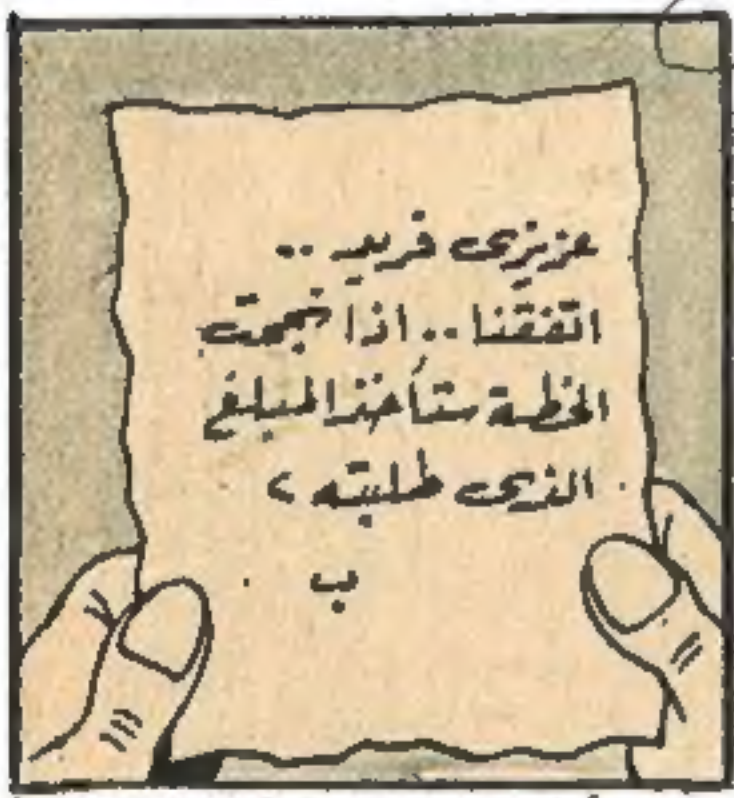 عزيزى فريد ..
اتفقنا .. اذا نجحت
الخطة ستأخذ المبلغ
الذى طلبته ،
ب